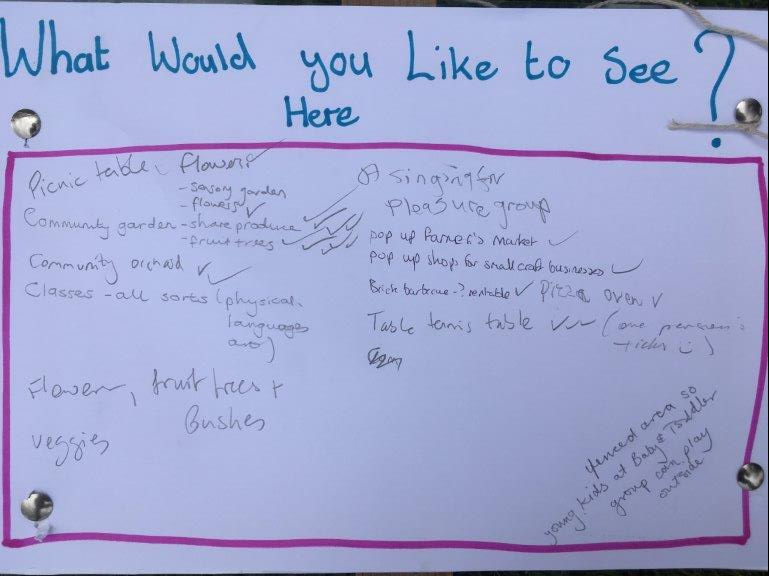 What Would you Like to See ?
Here
Picnic table, flowers ✓
- sensory garden
- flowers ✓
Community garden - share produce ✓✓✓
- fruit trees ✓✓✓
Community orchard ✓✓
Classes - all sorts (physical,
languages
)
Flowers, fruit trees +
Bushes
veggies
A singing for
Pleasure group
pop up Farmer's market ✓
pop up shops for small craft businesses ✓
Brick barbecue - ? rentable ✓ Pizza oven ✓
Table tennis table ✓✓ (one person's
ticks :))
fenced area so
young kids at Baby & Toddler
group can play
outside